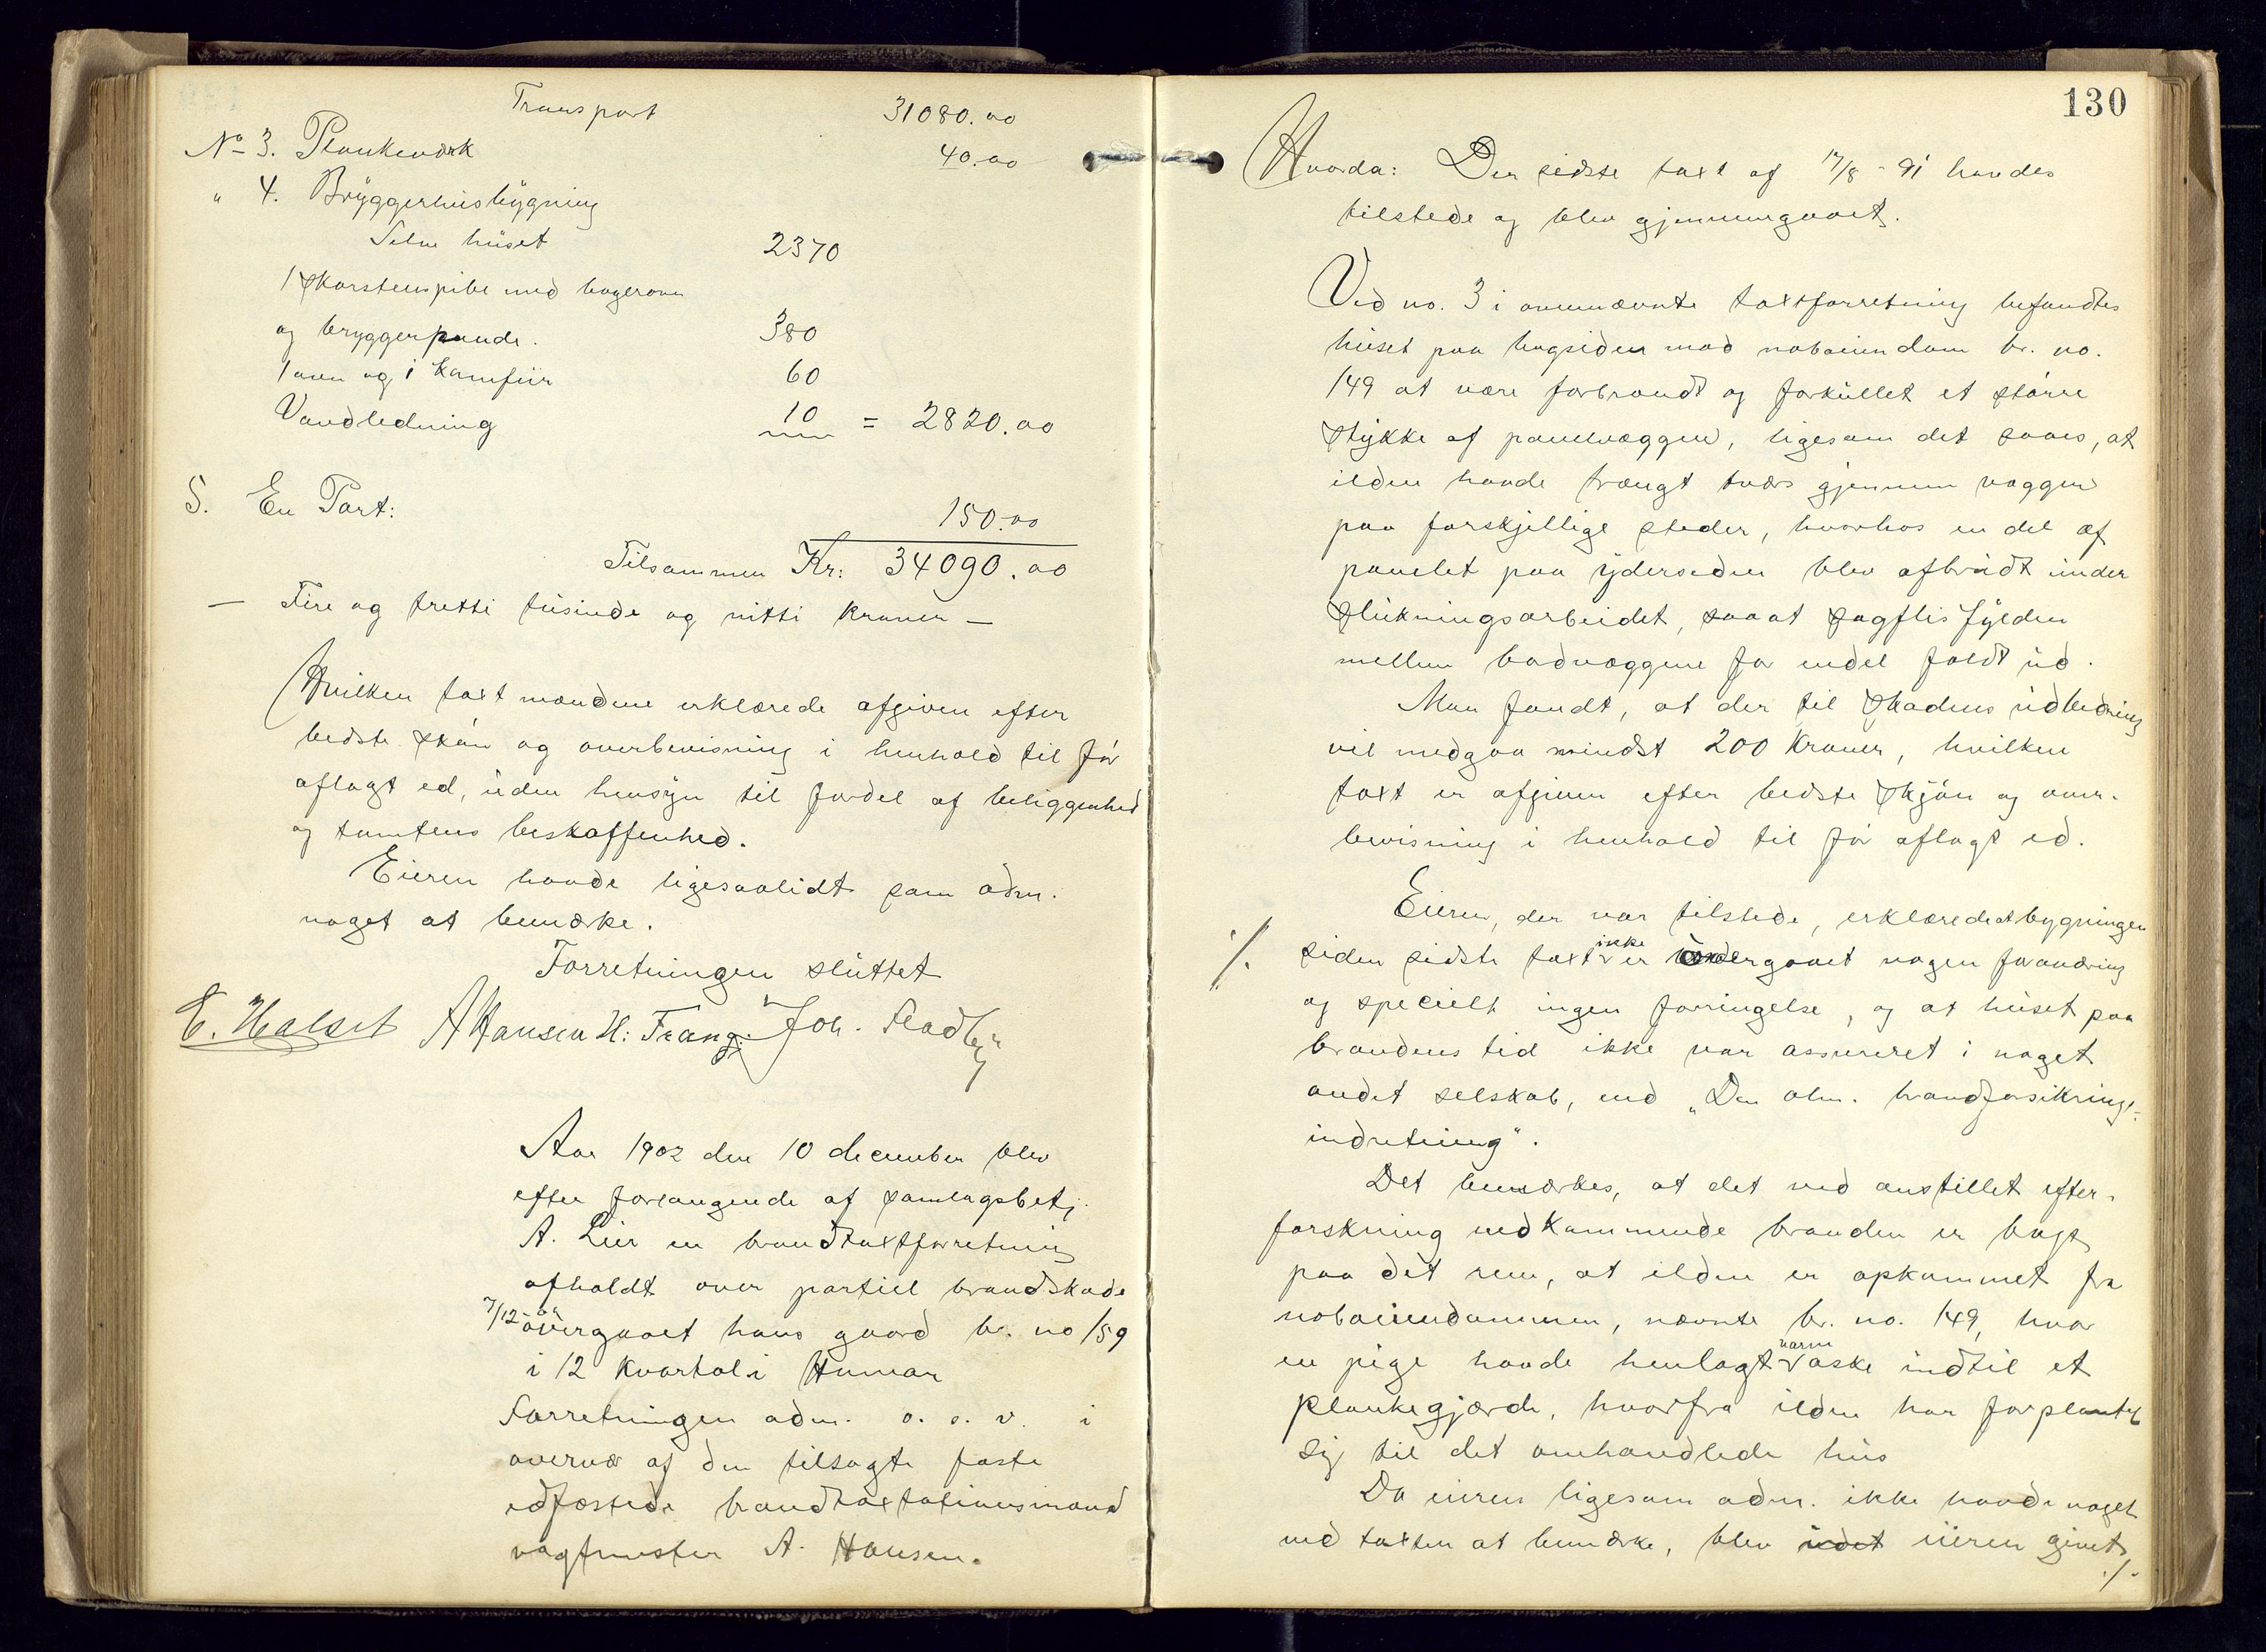 Transport 31080.00
No 3. Plankeværk 40.00
" 4. Bryggerhusbygning
Selve huset 2370
1 skorstenspibe med bagerovn
og bryggerpande. 380
1 ovn og 1 kamfür 60
Vandledning 10 = 2820.00
5. En Port: 150.00
Tilsammen Kr: 34090.00
— Fire og tretti tusinde og nitti kroner —
Hvilken taxt mændene erklærede afgiven efter
bedste skøn og overbevisning i henhold til før
aflagt ed, uden hensyn til fordel af beliggenhed
og tomtens beskaffenhed.
Eieren havde ligesaalidt som adm.
noget at bemærke.
Forretningen sluttet
E. Halset A Hansen H: Træng. Joh. Stadby
Aar 1902 den 10 december blev
efter forlangende af samlagsbetj.
A. Lier en brandtaxtforretning
afholdt over partiel brandskade
7/12 d.a. overgaaet hans gaard br. no 159
i 12 kvartal i Hamar
Forretningen adm. o. s. v. i
overvær af den tilsagte faste
edfæstede brandtaxtationsmand
vagtmester A. Hansen.
130
Hvorda: Den sidste taxt af 17/8 - 91 havdes
tilstede og blev gjennemgaaet.
Ved no. 3 i ovennævnte taxtforretning befandtes
huset paa bagsiden mod naboeiendom br. no.
149 at være forbrændt og forkullet et større
stykke af panelvæggen, ligesom det saaes, at
ilden havde trængt tvers gjennem væggen
paa forskjellige steder, hvorhos en del af
panelet paa ydersiden blev afbrudt under
slukningsarbeidet, saaat sagflisfylden
mellem bordvæggene for endel faldt ud.
Man fandt, at der til skadens udbedring
vil medgaa mindst 200 kroner, hvilken
taxt er afgiven efter bedste skjøn og over-
bevisning i henhold til før aflagt ed.
Eieren, der var tilstede, erklærede at bygningen
./. siden sidste taxt ikke er undergaaet nogen forandring
og specielt ingen forringelse, og at huset paa
brandens tid ikke var assureret i noget
andet selskab, end „Den alm. brandforsikrings-
indretning".
Det bemærkes, at det ved anstillet efter-
forskning vedkommende branden er bragt
paa det rene, at ilden er opkommet fra
naboeiendommen, nævnte br. no. 149, hvor
en pige havde henlagt varm aske indtil et
plankegjærde, hvorfra ilden har forplantet
sig til det omhandlede hus
Da eieren ligesom adm. ikke havde noget
ved taxten at bemærke, blev udet eieren givet
./.